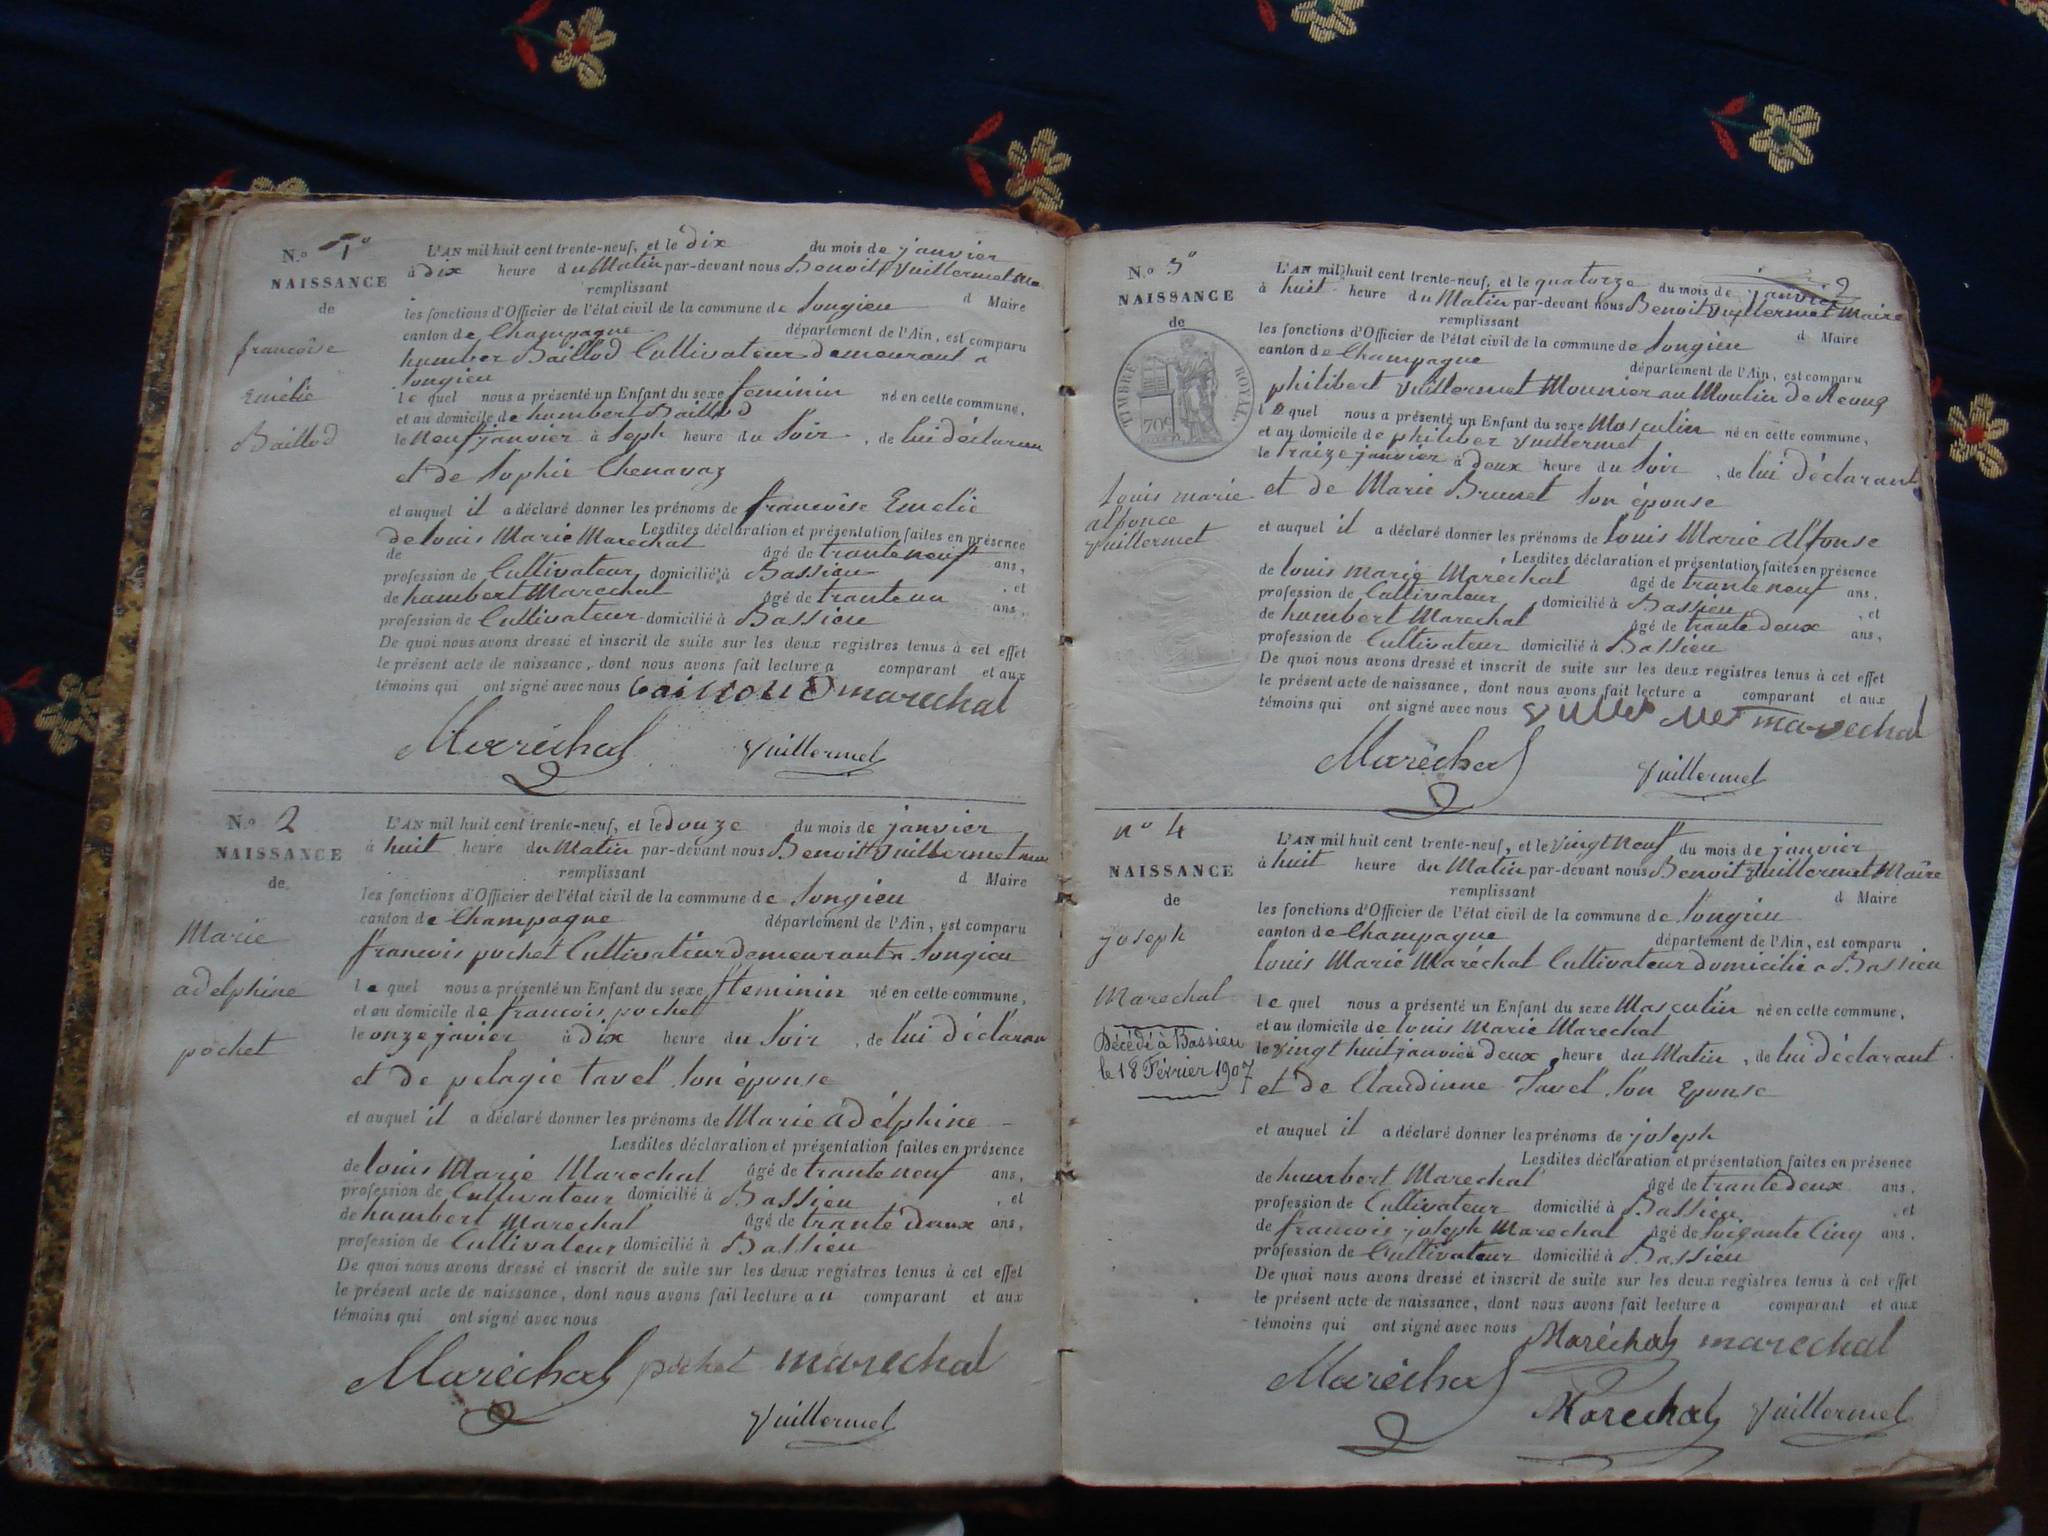 N.º 1º
NAISSANCE
de
francoise
Emélie
Baillod
L'AN mil huit cent trente-neuf, et le dix du mois de janvier
à dix heure du Matin par-devant nous Benoit Vuillermet
remplissant d Maire
les fonctions d'Officier de l'état civil de la commune de Songieu
canton de Champagne département de l'Ain, est comparu
humber Baillod Cultivateur demeurant a
Songieu
le quel nous a présenté un Enfant du sexe feminin né en cette commune,
et au domicile de humbert Baillod
le neuf janvier à Seph heure du Soir, de lui déclaran
et de Sophie Chenavaz
et auquel il a déclaré donner les prénoms de francoise Emélie
Lesdites déclaration et présentation faites en présence
de louis Marie Marechal
de âgé de trante neuf ans,
profession de Cultivateur domicilié à Bassieu , et
de humbert Marechal âgé de trante un ans,
profession de Cultivateur domicilié à Bassieu
De quoi nous avons dressé et inscrit de suite sur les deux registres tenus à cet effet
le présent acte de naissance, dont nous avons fait lecture a comparant et aux
témoins qui ont signé avec nous bailloud marechal
Maréchal Vuillermet
N.º 2
NAISSANCE
de
Marie
adelphine
pochet
L'AN mil huit cent trente-neuf, et le douze du mois de janvier
à huit heure du Matin par-devant nous Benoit Vuillermet
remplissant d Maire
les fonctions d'Officier de l'état civil de la commune de Songieu
canton de Champagne département de l'Ain, est comparu
francois pochet Cultivateur demeurant a Songieu
le quel nous a présenté un Enfant du sexe feminin né en cette commune,
et au domicile de francois pochet
le onze janvier à dix heure du Soir, de lui déclaran
et de pelagie tavel son épouse
et auquel il a déclaré donner les prénoms de Marie adélphine
Lesdites déclaration et présentation faites en présence
de louis Marie Marechal âgé de trante neuf ans,
profession de Cultivateur domicilié à Bassieu , et
de humbert Marechal âgé de trante deux ans,
profession de Cultivateur domicilié à Bassieu
De quoi nous avons dressé et inscrit de suite sur les deux registres tenus à cet effet
le présent acte de naissance, dont nous avons fait lecture au comparant et aux
témoins qui ont signé avec nous
Maréchal pochet marechal
Vuillermet
2
N.º 3º
NAISSANCE
de
TIMBRE ROYAL
70c
Louis marie
alfonce
Vuillermet
L'AN mil huit cent trente-neuf, et le quatorze du mois de janvier
à huit heure du Matin par-devant nous Benoit Vuillermet Maire
remplissant d Maire
les fonctions d'Officier de l'état civil de la commune de Songieu
canton de Champagne département de l'Ain, est comparu
philibert Vuillermet Mounier au Moulin de
le quel nous a présenté un Enfant du sexe Masculin né en cette commune,
et au domicile de philiber Vuillermet
le traize janvier à deux heure du Soir, de lui déclarant
et de Marie Brunet Son épouse
et auquel il a déclaré donner les prénoms de louis Marie alfonse
Lesdites déclaration et présentation faites en présence
de louis marie Marechal âgé de trante neuf ans,
profession de Cultivateur domicilié à Bassieu , et
de humbert Marechal âgé de trante deux ans,
profession de Cultivateur domicilié à Bassieu
De quoi nous avons dressé et inscrit de suite sur les deux registres tenus à cet effet
le présent acte de naissance, dont nous avons fait lecture a comparant et aux
témoins qui ont signé avec nous marechal
Maréchal Vuillermet
nº 4
NAISSANCE
de
joseph
Marechal
Décédé à Bassieu
le 18 Février 1907
L'AN mil huit cent trente-neuf, et le vingt neuf du mois de janvier
à huit heure du Matin par-devant nous Benoit Vuillermet Maire
remplissant d Maire
les fonctions d'Officier de l'état civil de la commune de Songieu
canton de Champagne département de l'Ain, est comparu
louis Marie Maréchal Cultivateur domicilié a Bassieu
le quel nous a présenté un Enfant du sexe Masculin né en cette commune,
et au domicile de louis Marie Marechal
le vingt huit janvié à deux heure du Matin, de lui déclarant
et de Claudinne Tavel Son Epouse
et auquel il a déclaré donner les prénoms de joseph
Lesdites déclaration et présentation faites en présence
de humbert Marechal âgé de trante deux ans,
profession de Cultivateur domicilié à Bassieu , et
de francois joseph Marechal âgé de Soigante Cinq ans,
profession de Cultivateur domicilié à Bassieu
De quoi nous avons dressé et inscrit de suite sur les deux registres tenus à cet effet
le présent acte de naissance, dont nous avons fait lecture a comparant et aux
témoins qui ont signé avec nous Maréchal marechal
Maréchal
Marechal Vuillermet